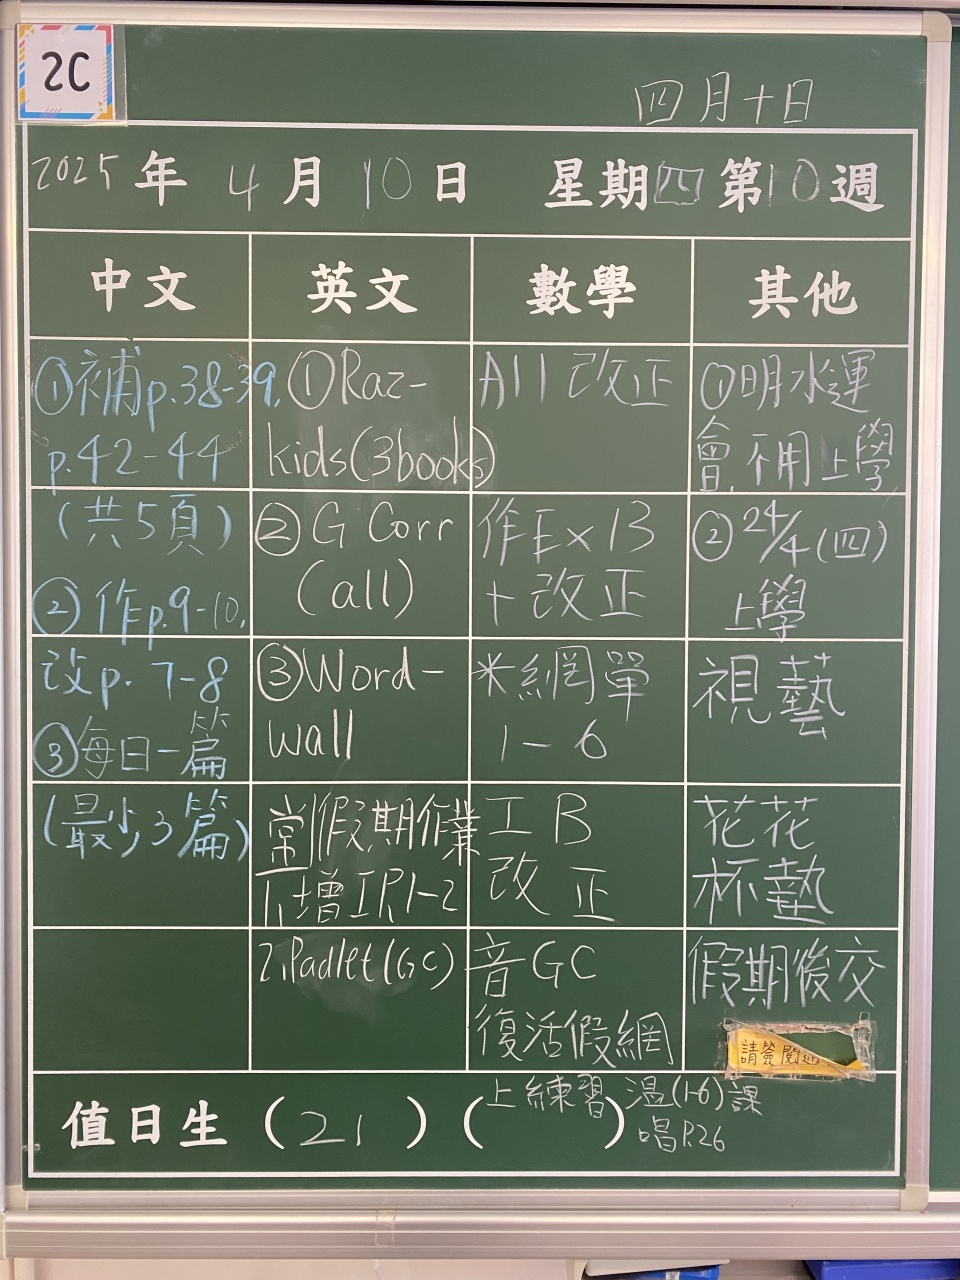 2C
四月十日
2025年4月10日 星期四第10週
中文
英文
數學
其他
①補p.38-39,
p.42-44
(共5頁)
②作p.9-10,
改p. 7-8
③每日一篇
(最少3篇)
①Raz-
kids(3books)
②G Corr
(all)
③Word-
wall
常假期作業
1.增IRP.1-2
2.Padlet(GC)
All 改正
作Ex13
+改正
*網單
1-6
工B
改正
音GC
復活假網
上練習溫(1-6)課
唱P.26
①明水運
會,不用上學,
②24/4(四)
上學
視藝
花花
杯墊
假期後交
請簽閱
值日生(21)( )